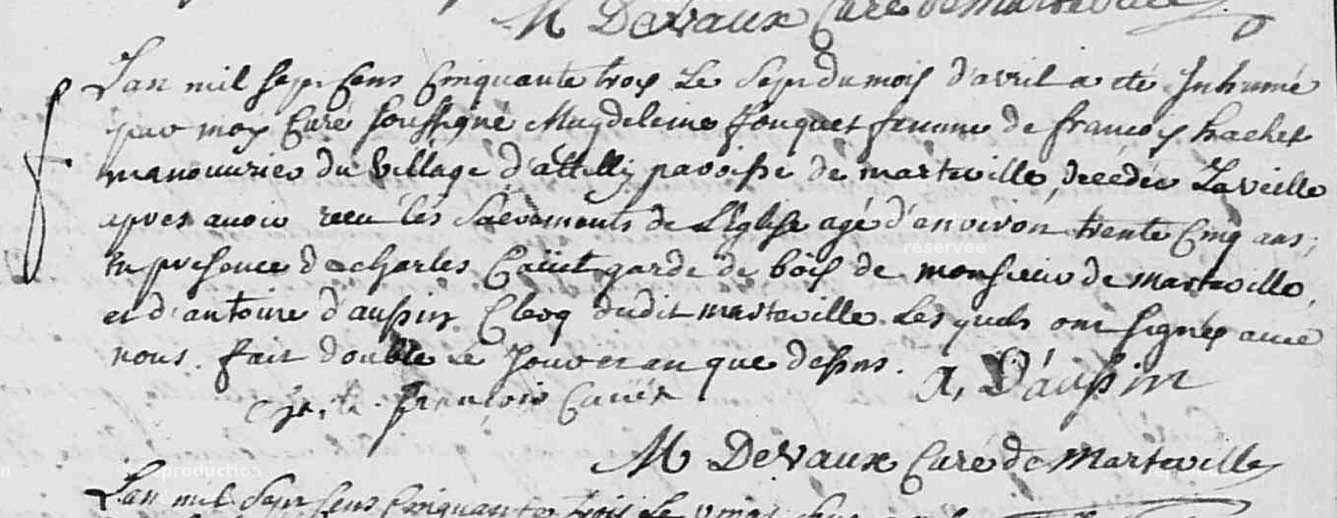 M Devaux Curé de Marteville
L'an mil sept Cens Cinquante trois Le Sept du mois d'avril a eté Inhumé
par moy Curé soussigné Magdeleine fouquet femme de francois hachet
manouurier du village d'attilly paroisse de marteville, decedée La veille
apres auoir receu les Sacrements de L'Eglise agé d'environ trente Cinq ans,
En presence de charles Cauët garde de bois de monsieur de marteville,
et d'antoine d'aussin Clercq dudit marteville. Les quels ont signés auec
nous. fait double Le Jour et an que dessus.
f
A, D'aussin
françois Cauët
M Devaux Curé de Marteville
L'an mil Sept Cens Cinquante trois Le
reservee
reproduction